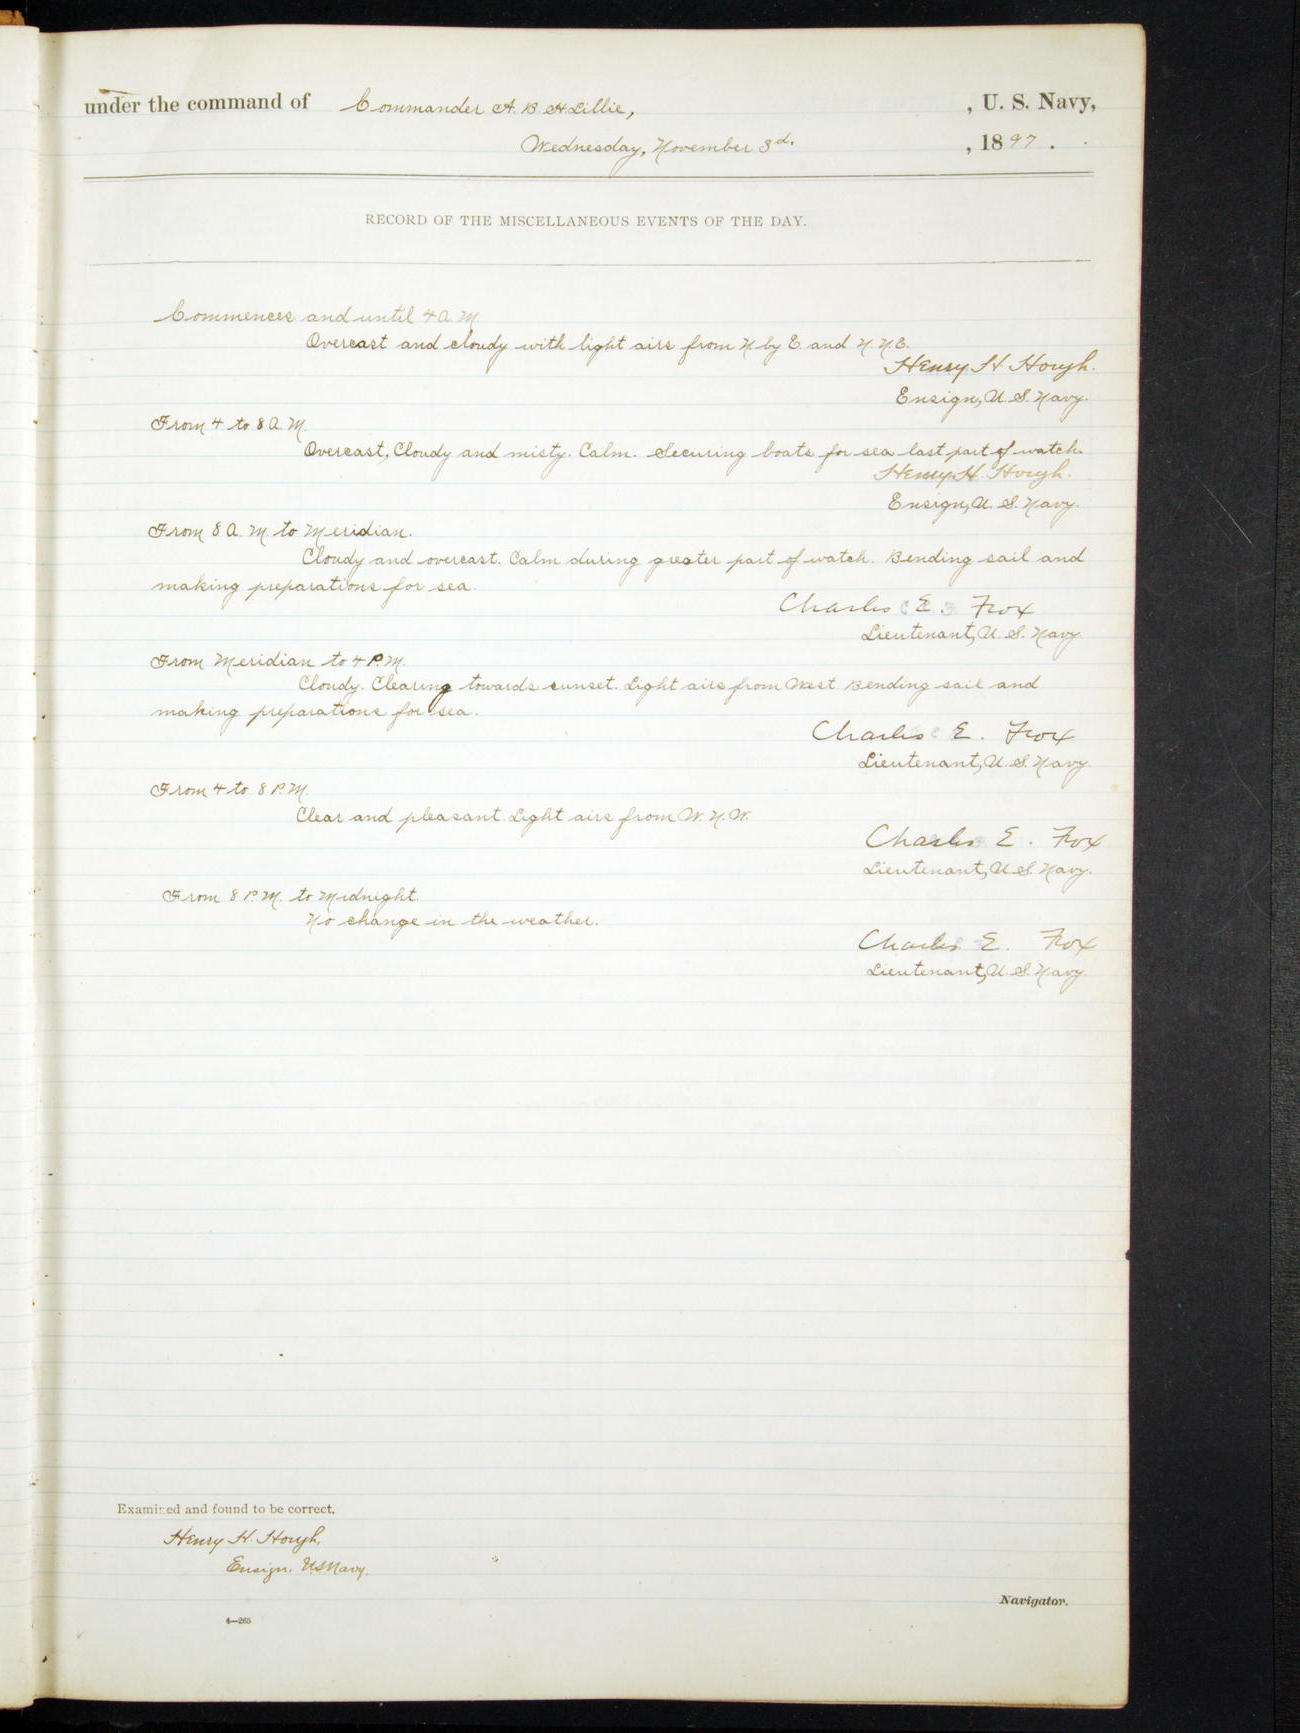 under the command of Commander A. B. H. Lillie, , U. S. Navy,
Wednesday, November 3d. , 1897 .
RECORD OF THE MISCELLANEOUS EVENTS OF THE DAY.
Commences and until 4 A. M.
Overcast and cloudy with light airs from N. by E. and N. N. E.
Henry H. Hough.
Ensign, U. S. Navy.
From 4 to 8 A. M.
Overcast, Cloudy and misty. Calm. Securing boats for sea last part of watch.
Henry H. Hough.
Ensign, U. S. Navy.
From 8 A. M. to Meridian.
Cloudy and overcast. Calm during greater part of watch. Bending sail and
making preparations for sea.
Charles E. Fox
Lieutenant, U. S. Navy
From Meridian to 4 P. M.
Cloudy. Clearing towards sunset. Light airs from West Bending sail and
making preparations for sea.
Charles E. Fox
Lieutenant, U. S. Navy
From 4 to 8 P. M.
Clear and pleasant. Light airs from W. N. W.
Charles E. Fox
Lieutenant, U. S. Navy.
From 8 P. M. to Midnight.
No change in the weather.
Charles E. Fox
Lieutenant, U. S. Navy
Examined and found to be correct.
Henry H. Hough,
Ensign. U S Navy.
Navigator.
4—265